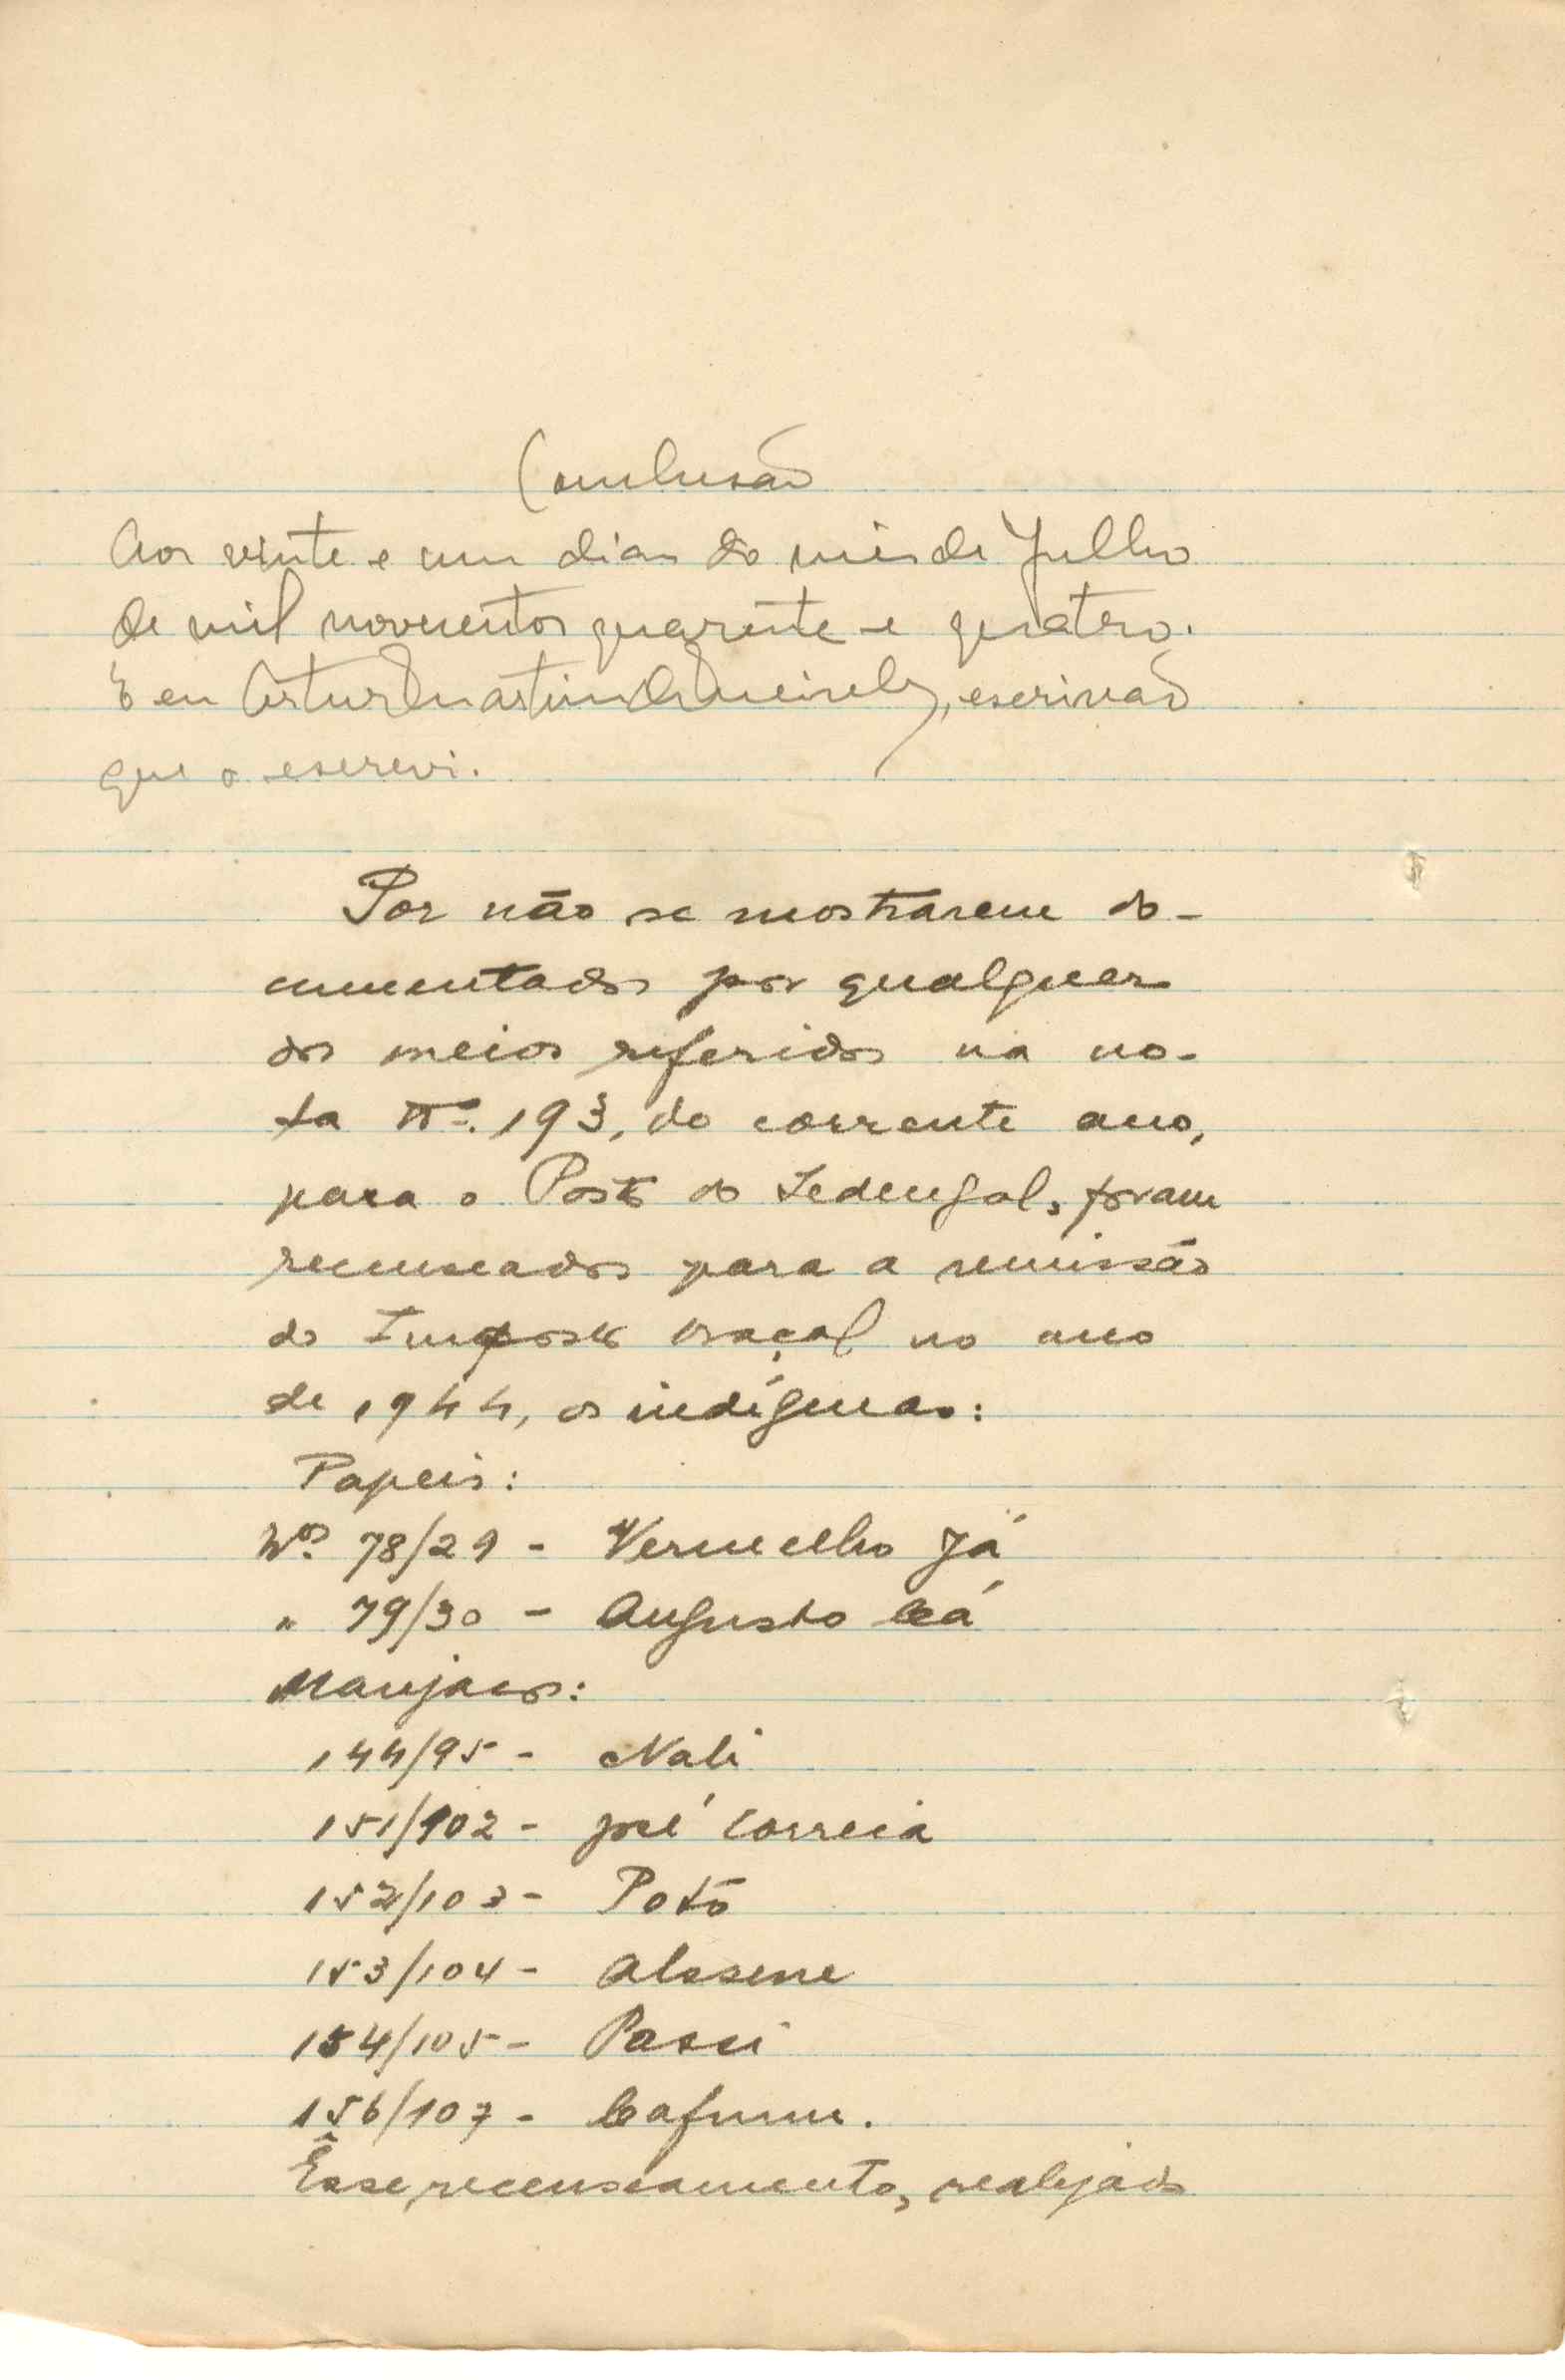 Conclusão
Aos vinte e um dias do mês de Julho
de mil novecentos quarenta e quatro.
E eu Artur Martins de Meireles, escrivão
que o escrevi.
Por não se mostrarem do-
cumentados por qualquer
dos meios referidos na no-
ta nº. 193, do corrente ano,
para o Posto do Sedengal, foram
recenseados para a remissão
do Imposto braçal no ano
de 1944, os indígenas:
Papeis:
Nos. 78/29 - Vermelho Já
" 79/30 - Augusto Cá
Manjacos:
144/95 - Nali
151/102 - José Correia
152/103 - Potó
153/104 - Alssene
154/105 - Passi
156/107 - Cafum.
Êsse recenseamento, realizado